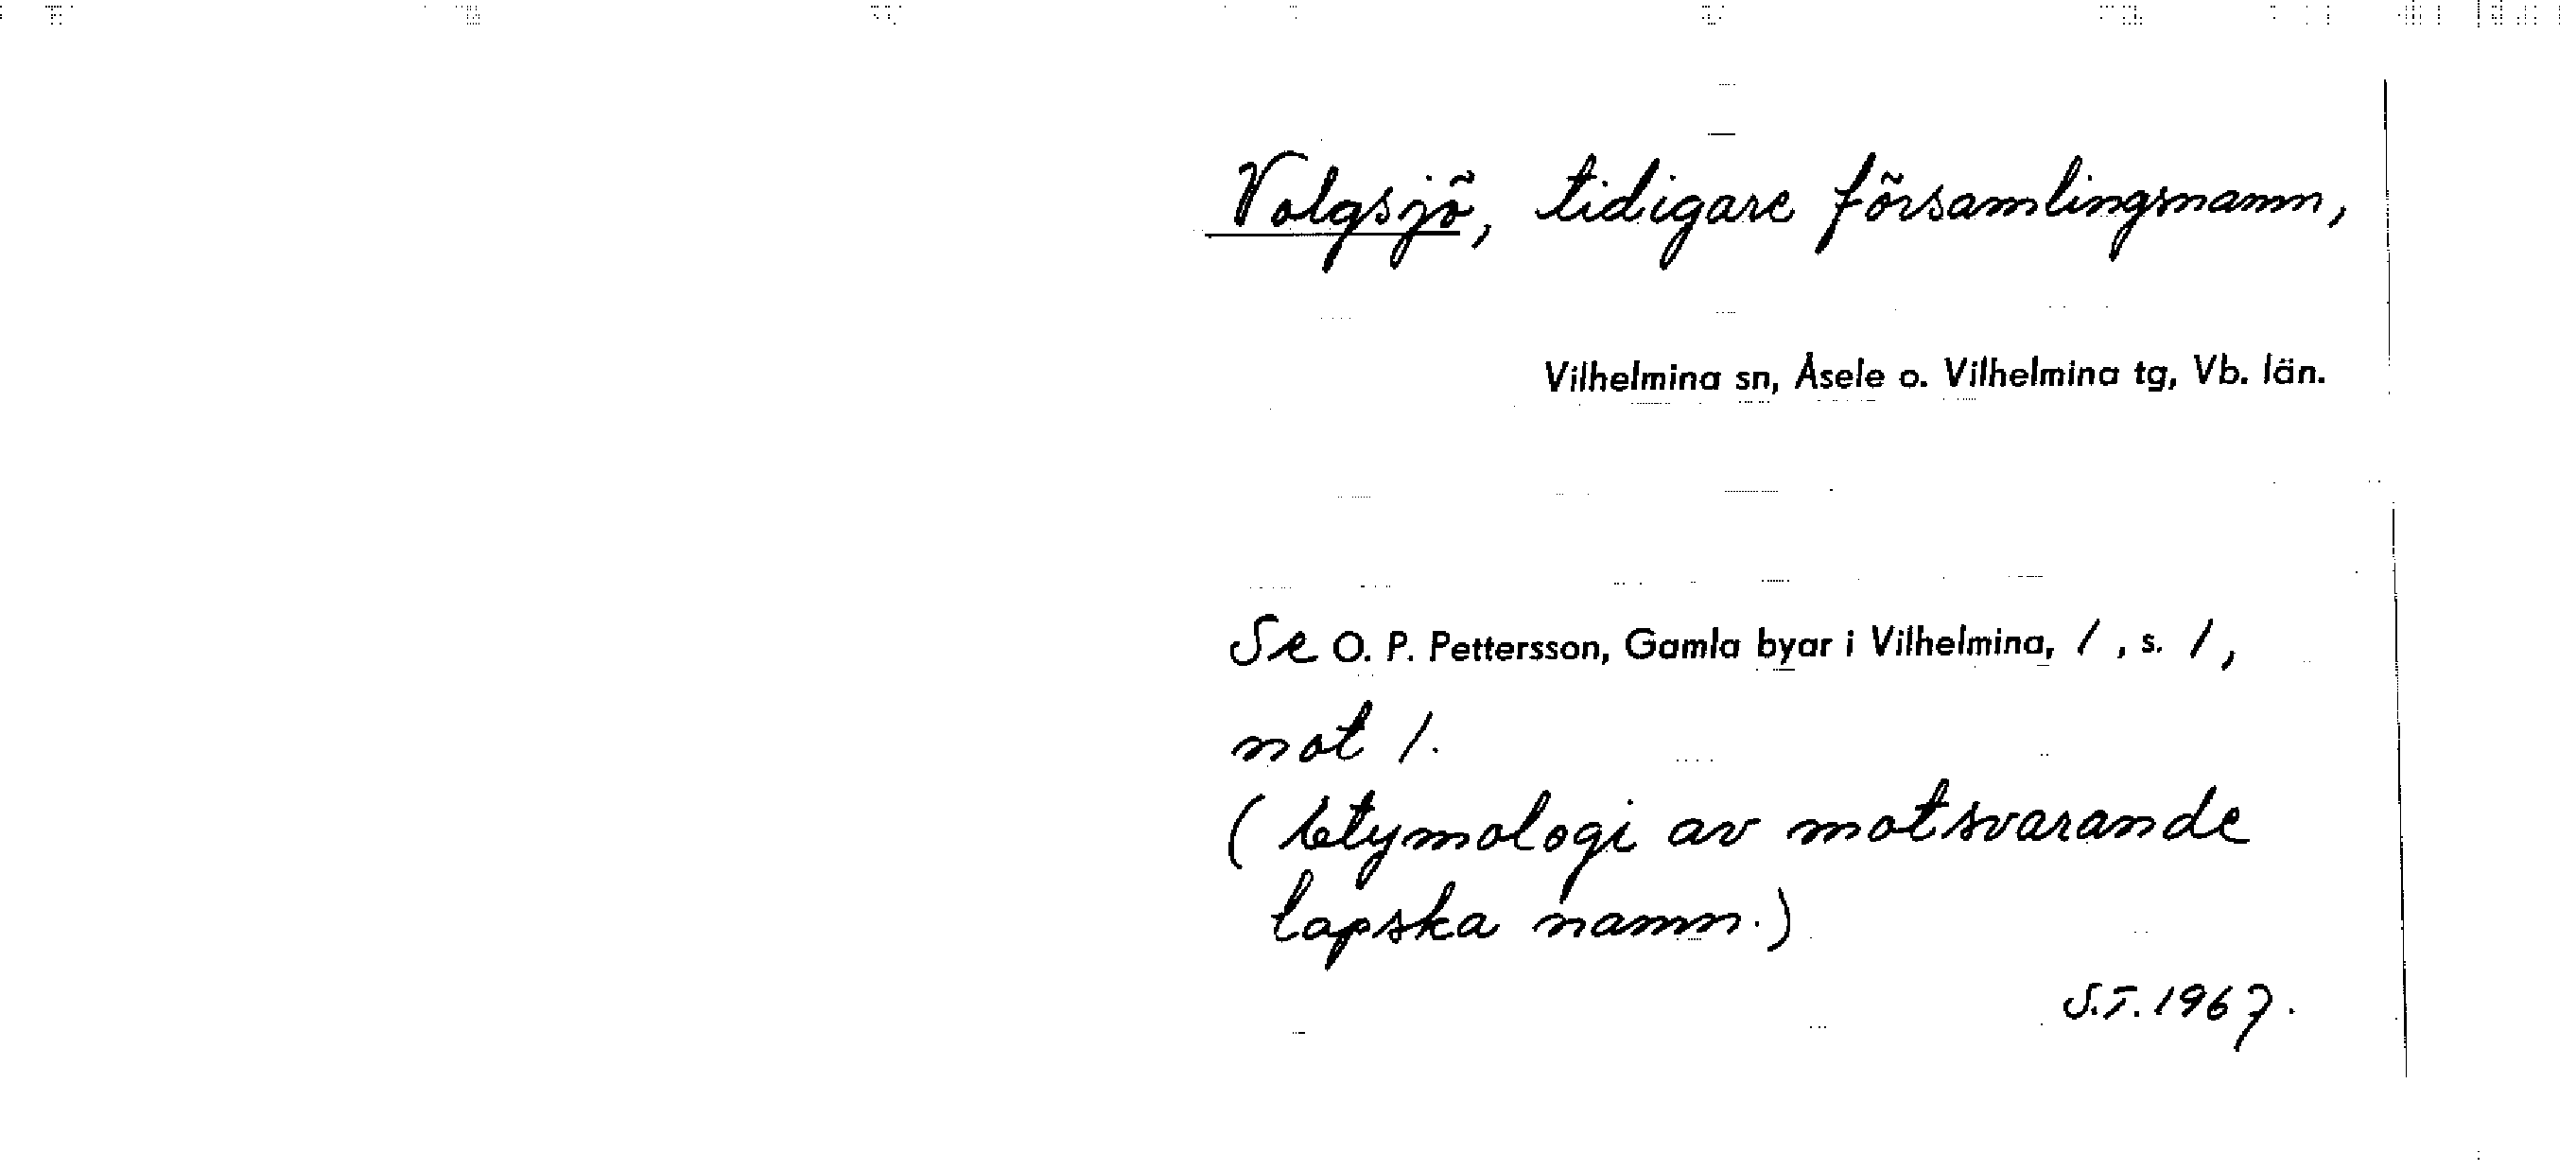 Volgsjö, tidigare församlingsnamn,
Vilhelmina sn, Åsele o. Vilhelmina tg, Vb. län.
Se O. P. Pettersson, Gamla byar i Vilhelmina, 1, s. 1,
not 1.
(Etymologi av motsvarande
lapska namn.)
S.T. 1967.